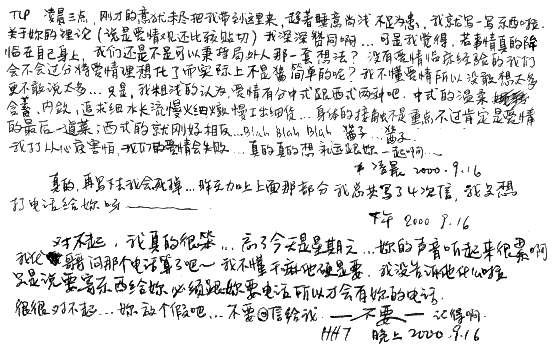 TLP 凌晨三点，刚才的意犹未尽把我带到这里来，趁着睡意尚浅不足为患，我就写一写东西啦。
关于妳的理论（说是爱情观还比较贴切）我深深赞同啊…可是我觉得，若事情真的降
临在自己身上，我们还是不是可以秉持局外人那一套想法？没有爱情临床经验的我们
会不会过分将爱情理想化了而实际上不是这简单的呢？我不懂爱情所以没敢想太多
更不敢说太多…只是，我粗浅的认为，爱情有分中式跟西式两种吧．中式的温柔
含蓄、内敛，追求细水长流慢火细炖慢工出细货…身体的接触不是重点不过肯定是爱情
的最后一道菜；西式的就刚好相反…Blah Blah Blah
我打从心底害怕，我们的爱情会失败…真的真的想永远跟妳一起啊…
凌晨 2000.9.16
真的，再写下去我会死掉…昨天加上上面那部分我总共写了4次信，我又想
打电话给妳呀
下午 2000 9.16
对不起，我真的很笨…忘了今天是星期六…妳的声音听起来很累啊
问那个电话算了吧～我不懂干嘛他硬是要．我没告诉他什么啦
只是说要写东西给妳必须跟妳要电话所以才会有妳的电话．
很很对不起…妳放个假吧…不要回信给我 —不要— 记得啊．
HHT 晚上 2000.9.16